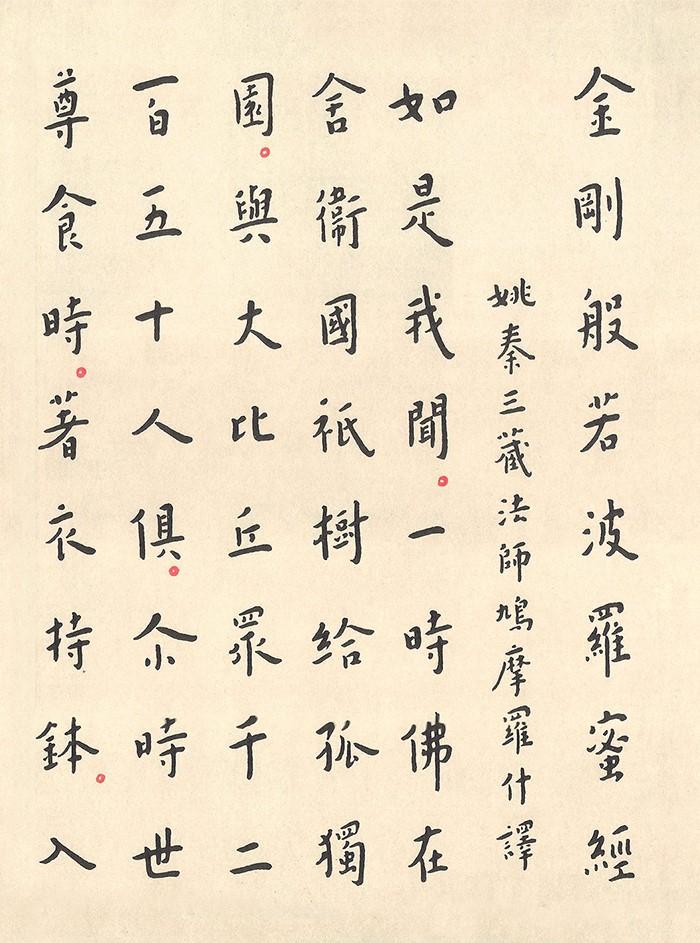 金剛般若波羅蜜經
姚秦三藏法師鳩摩羅什譯
如是我聞。一時佛在
舍衞國祇樹給孤獨
園。與大比丘眾千二
百五十人俱。尒時世
尊食時。著衣持鉢。入